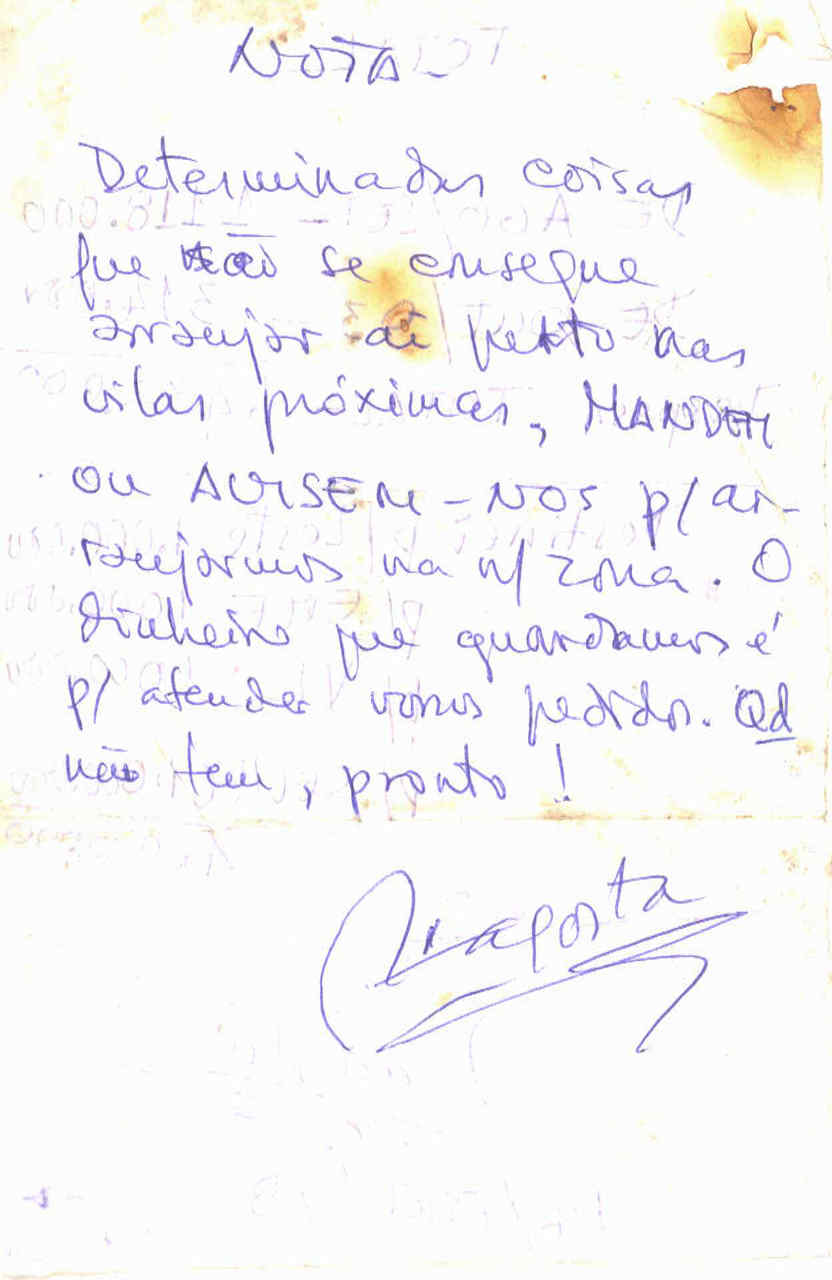 NOTA
Determinadas coisas
que não se consegue
arranjar aí perto nas
vilas próximas, MANDEM
OU AVISEM-NOS p/ ar-
ranjarmos na n/ zona. O
dinheiro que guardamos é
p/ atender vossos pedidos. Qd
não tem, pronto!
Lagosta